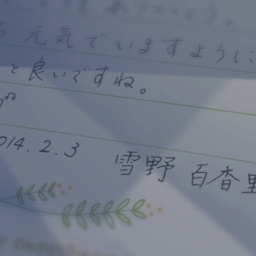 元気でいますように
と良いですね。
2014.2.3
雪野 百香里